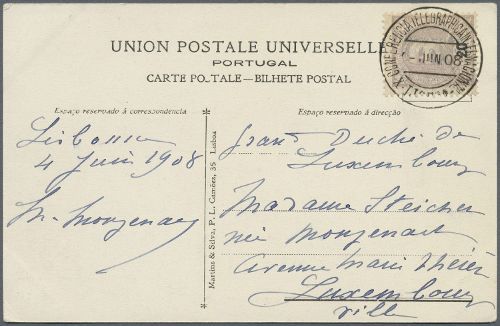 UNION POSTALE UNIVERSELLE
PORTUGAL
CARTE POSTALE—BILHETE POSTAL
Espaço reservado á correspondencia
Espaço reservado á direcção
Lisbonne
4 Juin 1908
Martins & Silva, P. L. Camões, 35 Lisboa
Grand Duché de
Luxembourg
Madame Steichen
née
Avenue Marie Thérèse
Luxembourg
ville
CONFERENCIA TELEGRAPHICA INTERNACIONAL
JUN 08